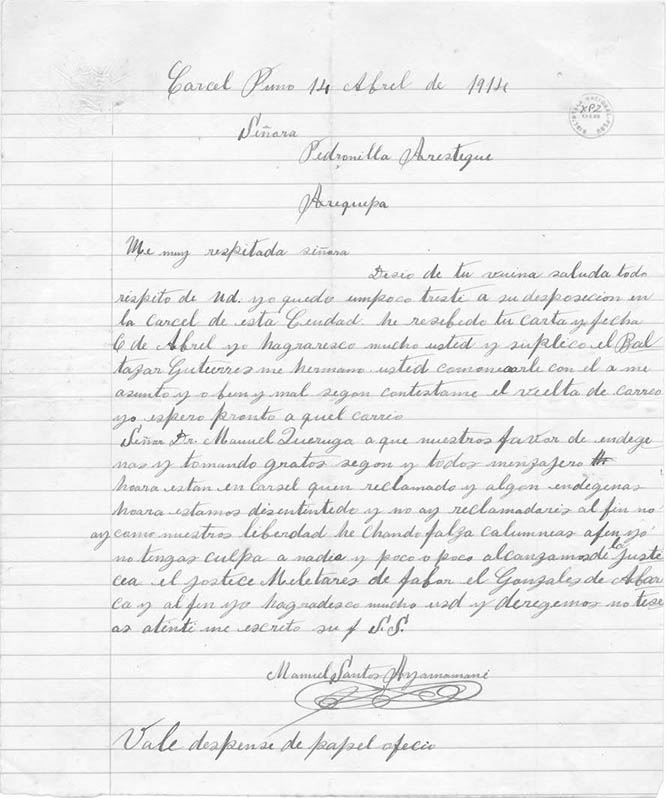 Carcel Puno 14 Abrel de 1914
XP2
Señora
Pedronilla Arestegue
Arequipa
Me muy respitada siñora
Desio de tu vuina saluda todo
respito de Ud. yo quedo umpoco treste a su desposecion en
la carcel de esta Ceudad he resebedo tu carta y fecha
6 de Abrel yo hagraresco mucho usted y suplico el Bal
tazar Gutierres me hermano usted comonecarle con el a me
asunto y o buen y mal segon contestame el vuelta de carreo
yo espero pronto aquel carreo
Señor Dr. Manuel Queruga a que nuestros favor de endege
nas y tomando gratos segon y todos menzajero
hoara estan en carsel quen reclamado y algon endegenas
hoara estamos desententedo y no ay reclamadores al fin no
ay como nuestros liberdad he chando falza calumneas afen yo
no tengas culpa a nadie y poco o poco alcanzamos de la juste
cea el jostece Meletares de fabor el Gonzales de Abar
ca y al fin yo hagradesco mucho usd y deregemos notese
as atente me escreto su f S.S.
Manuel Santos Ayamamani
Vale despense de papel ofecio